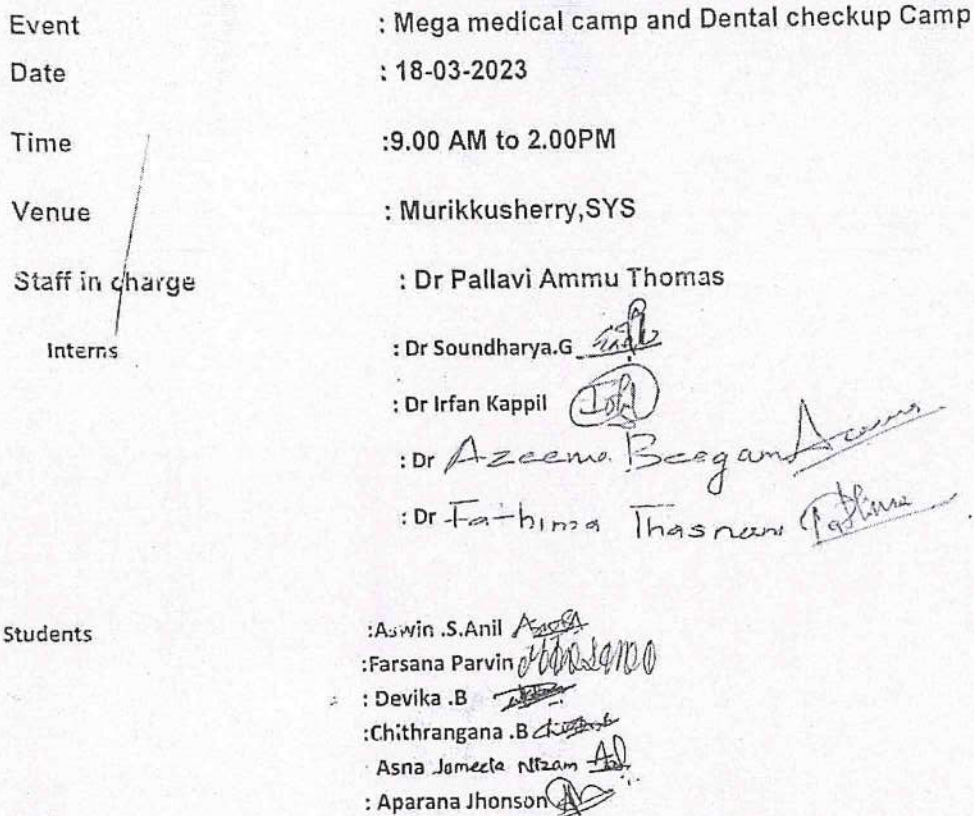 Event : Mega medical camp and Dental checkup Camp
Date : 18-03-2023
Time :9.00 AM to 2.00PM
Venue : Murikkusherry,SYS
Staff in charge : Dr Pallavi Ammu Thomas
Interns : Dr Soundharya.G
: Dr Irfan Kappil
: Dr Azeema Beegam
: Dr Fathima Thasneem
Students :Aswin .S.Anil
:Farsana Parvin
: Devika .B
:Chithrangana .B
Asna Jameela Nizam
: Aparana Jhonson